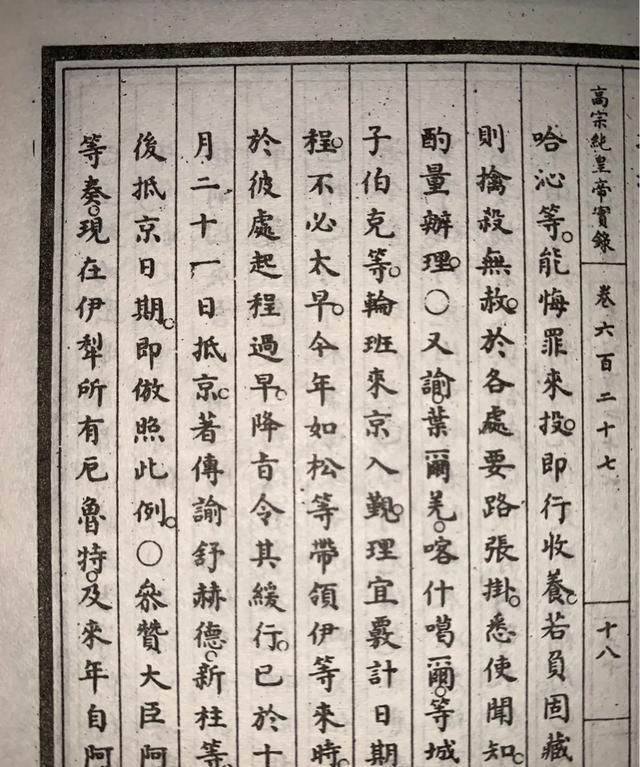 高宗純皇帝實錄　卷六百二十七　十八
哈沁等。能悔罪來投。即行收養。若負固藏
則擒殺無赦。於各處要路張掛。悉使聞知。
酌量辦理。○又諭。葉爾羌。喀什噶爾。等城
子伯克等。輪班來京入覲。理宜覈計日期
程。不必太早。今年如松等帶領伊等來時。
於彼處起程過早。降旨令其緩行。已於十
月二十一日抵京。著傳諭舒赫德。新柱等。
後抵京日期。即倣照此例。○參贊大臣阿
等奏。現在伊犁所有厄魯特。及來年自阿